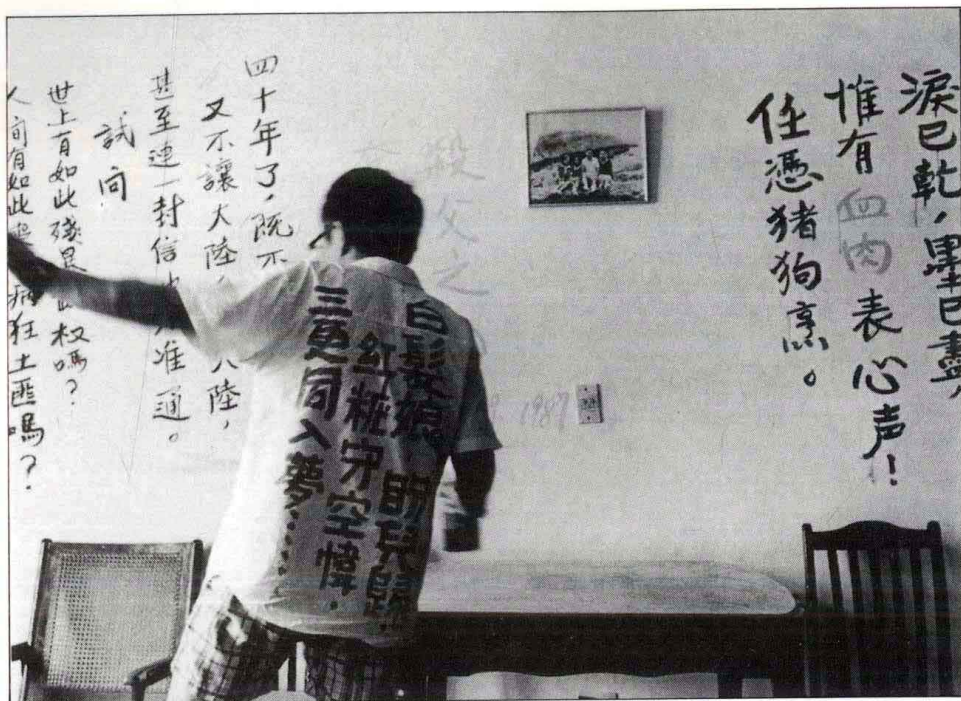 淚已乾,墨已盡,
惟有血肉表心声!
任憑猪狗烹。
殺父之
1987
四十年了,既不
又不讓大陸
大陸,
甚至連一封信
准通。
試问
世上有如此殘
权嗎?
人间有如此
狂土匪嗎?
白髮娘,盼兒歸.
紅粧守空幃.
三更同入夢......